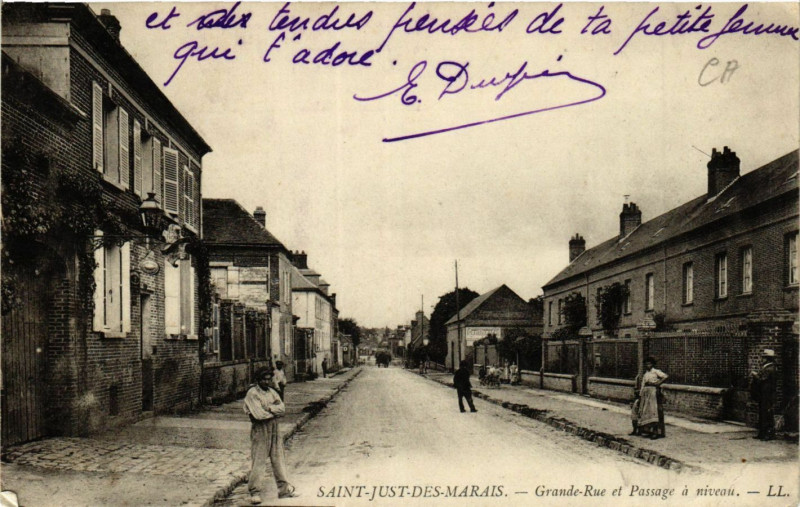 et tendres pensées de ta petite femme
qui t'adore.
E. Dupin
CA
SAINT-JUST-DES-MARAIS. — Grande-Rue et Passage à niveau. — LL.